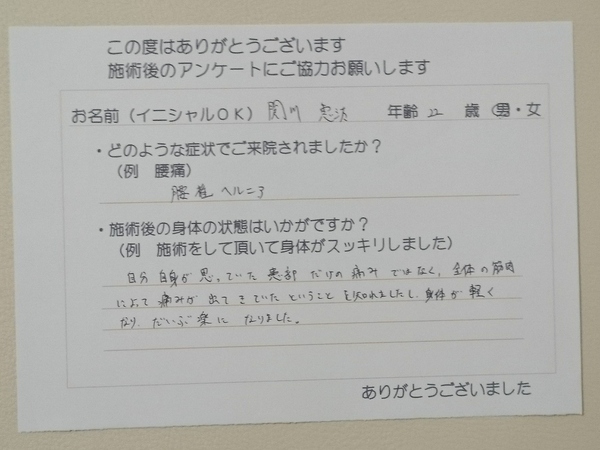 この度はありがとうございます
施術後のアンケートにご協力お願いします
お名前(イニシャルOK) 関川 恵次 年齢 22 歳 (男・女
・どのような症状でご来院されましたか?
(例 腰痛)
腰椎ヘルニア
・施術後の身体の状態はいかがですか?
(例 施術をして頂いて身体がスッキリしました)
自分自身が思っていた患部だけの痛みではなく、全体の筋肉
によって痛みが出てきていたということを知れましたし、身体が軽く
なり、だいぶ楽になりました。
ありがとうございました